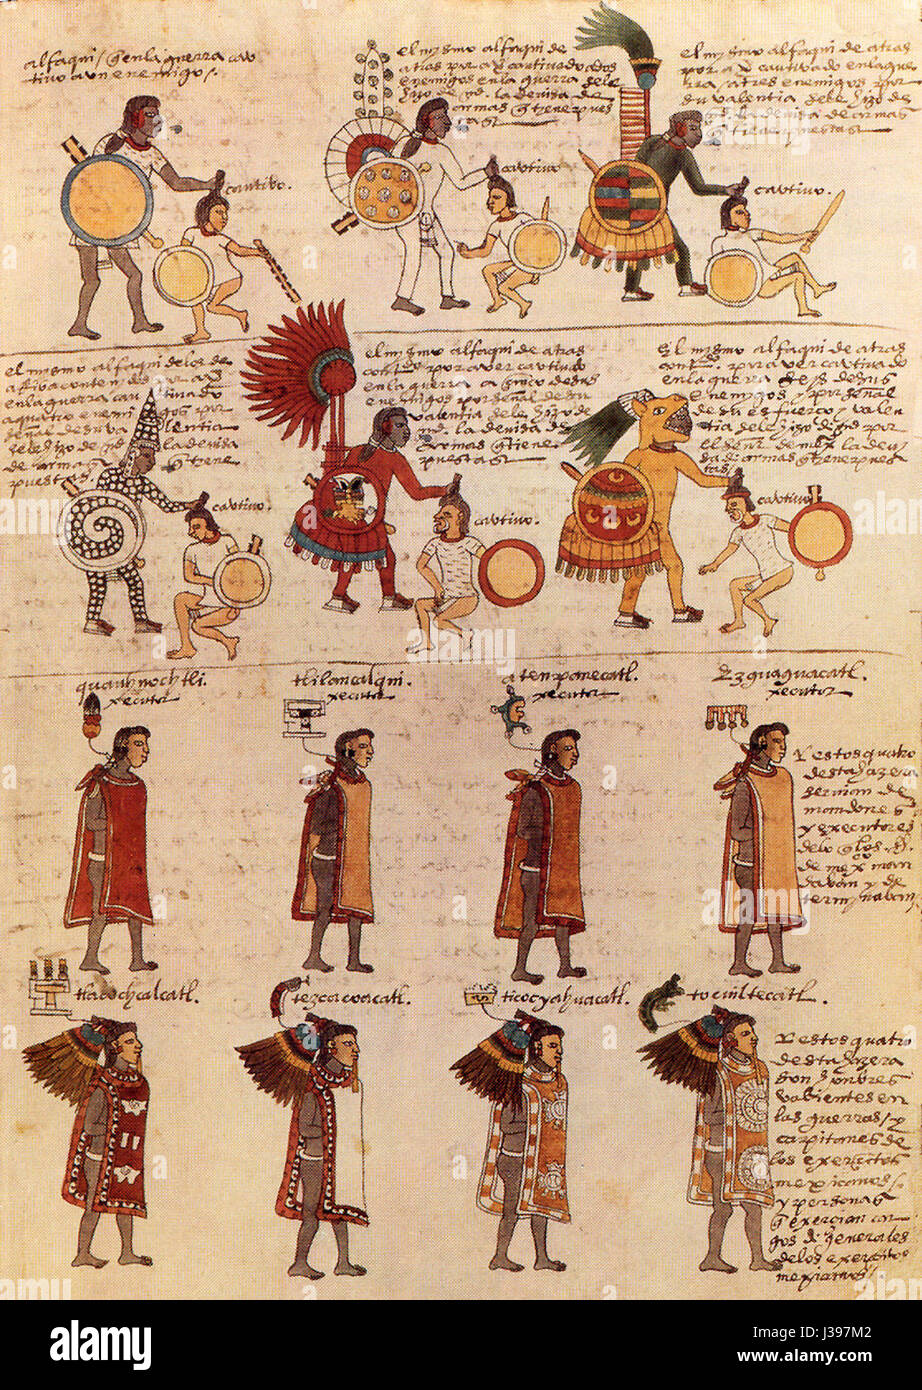 alfaqui / q̃ en la guerra cau
tivo a un enemigo /.
cautivo.
el mismo alfaqui de
atras por a ỽ cautivado a dos
enemigos en la guerra se le
hizo de md. la devisa de
armas q̃ tiene pues
tas
cautivo.
el mismo alfaqui de atras
por a ỽ cautivado en la gue
rra / a tres enemigos / por
su valentia se le hizo de
md. la devisa de armas
q̃ tiene puestas
cautivo.
el mismo alfaqui de los de
arriba contenidos por aỽ
en la guerra cautivado
a quatro enemigos por
señal de su valentia
se le hizo de md. la devisa
de armas q̃ tiene
puestas.
cautivo.
el mismo alfaqui de atras
conto. por aver cautivado
en la guerra a cinco de sus
enemigos por señal de su
valentia se le hizo de
md. la devisa de
armas q̃ tiene
puestas
cautivo.
El mismo alfaqui de atras
conto. por aver cautivado
en la guerra seys de sus
enemigos, y por señal
de su esfuerço / y valen
tia se le hizo de md por
el señor de mexco la devi
sa de armas q̃ tiene pues
tas /
cautivo.
quauhnochtli.
xecutor
tlilancalqui.
xecutor
atenpanecatl.
xecutor
Ezguaguacatl.
xecutor
Y estos quatro
desta hazera
servian de
mandones
y executores
de lo q̃ los. s.
de mexco man
davan y de
terminavan
tlacochcalcatl.
tezcacoacatl.
ticocyahuacatl.
tocuiltecatl.
Y estos quatro
desta hazera
son honbres
valientes en
las guerras / y
capitones de
los exercitos
mexicanos /.
y personas
q̃ exercian car
gos de generales
de los exercitos
mexicanos /
alamy
a
alamy stock photo
J397M2
www.alamy.com